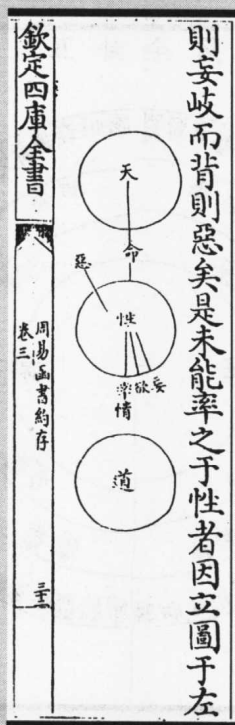 則妄歧而背則惡矣是未能率之于性者因立圖于左
天
命
惡
性
率欲妄
情
道
欽定四庫全書
周易函書約存
卷三
三十三